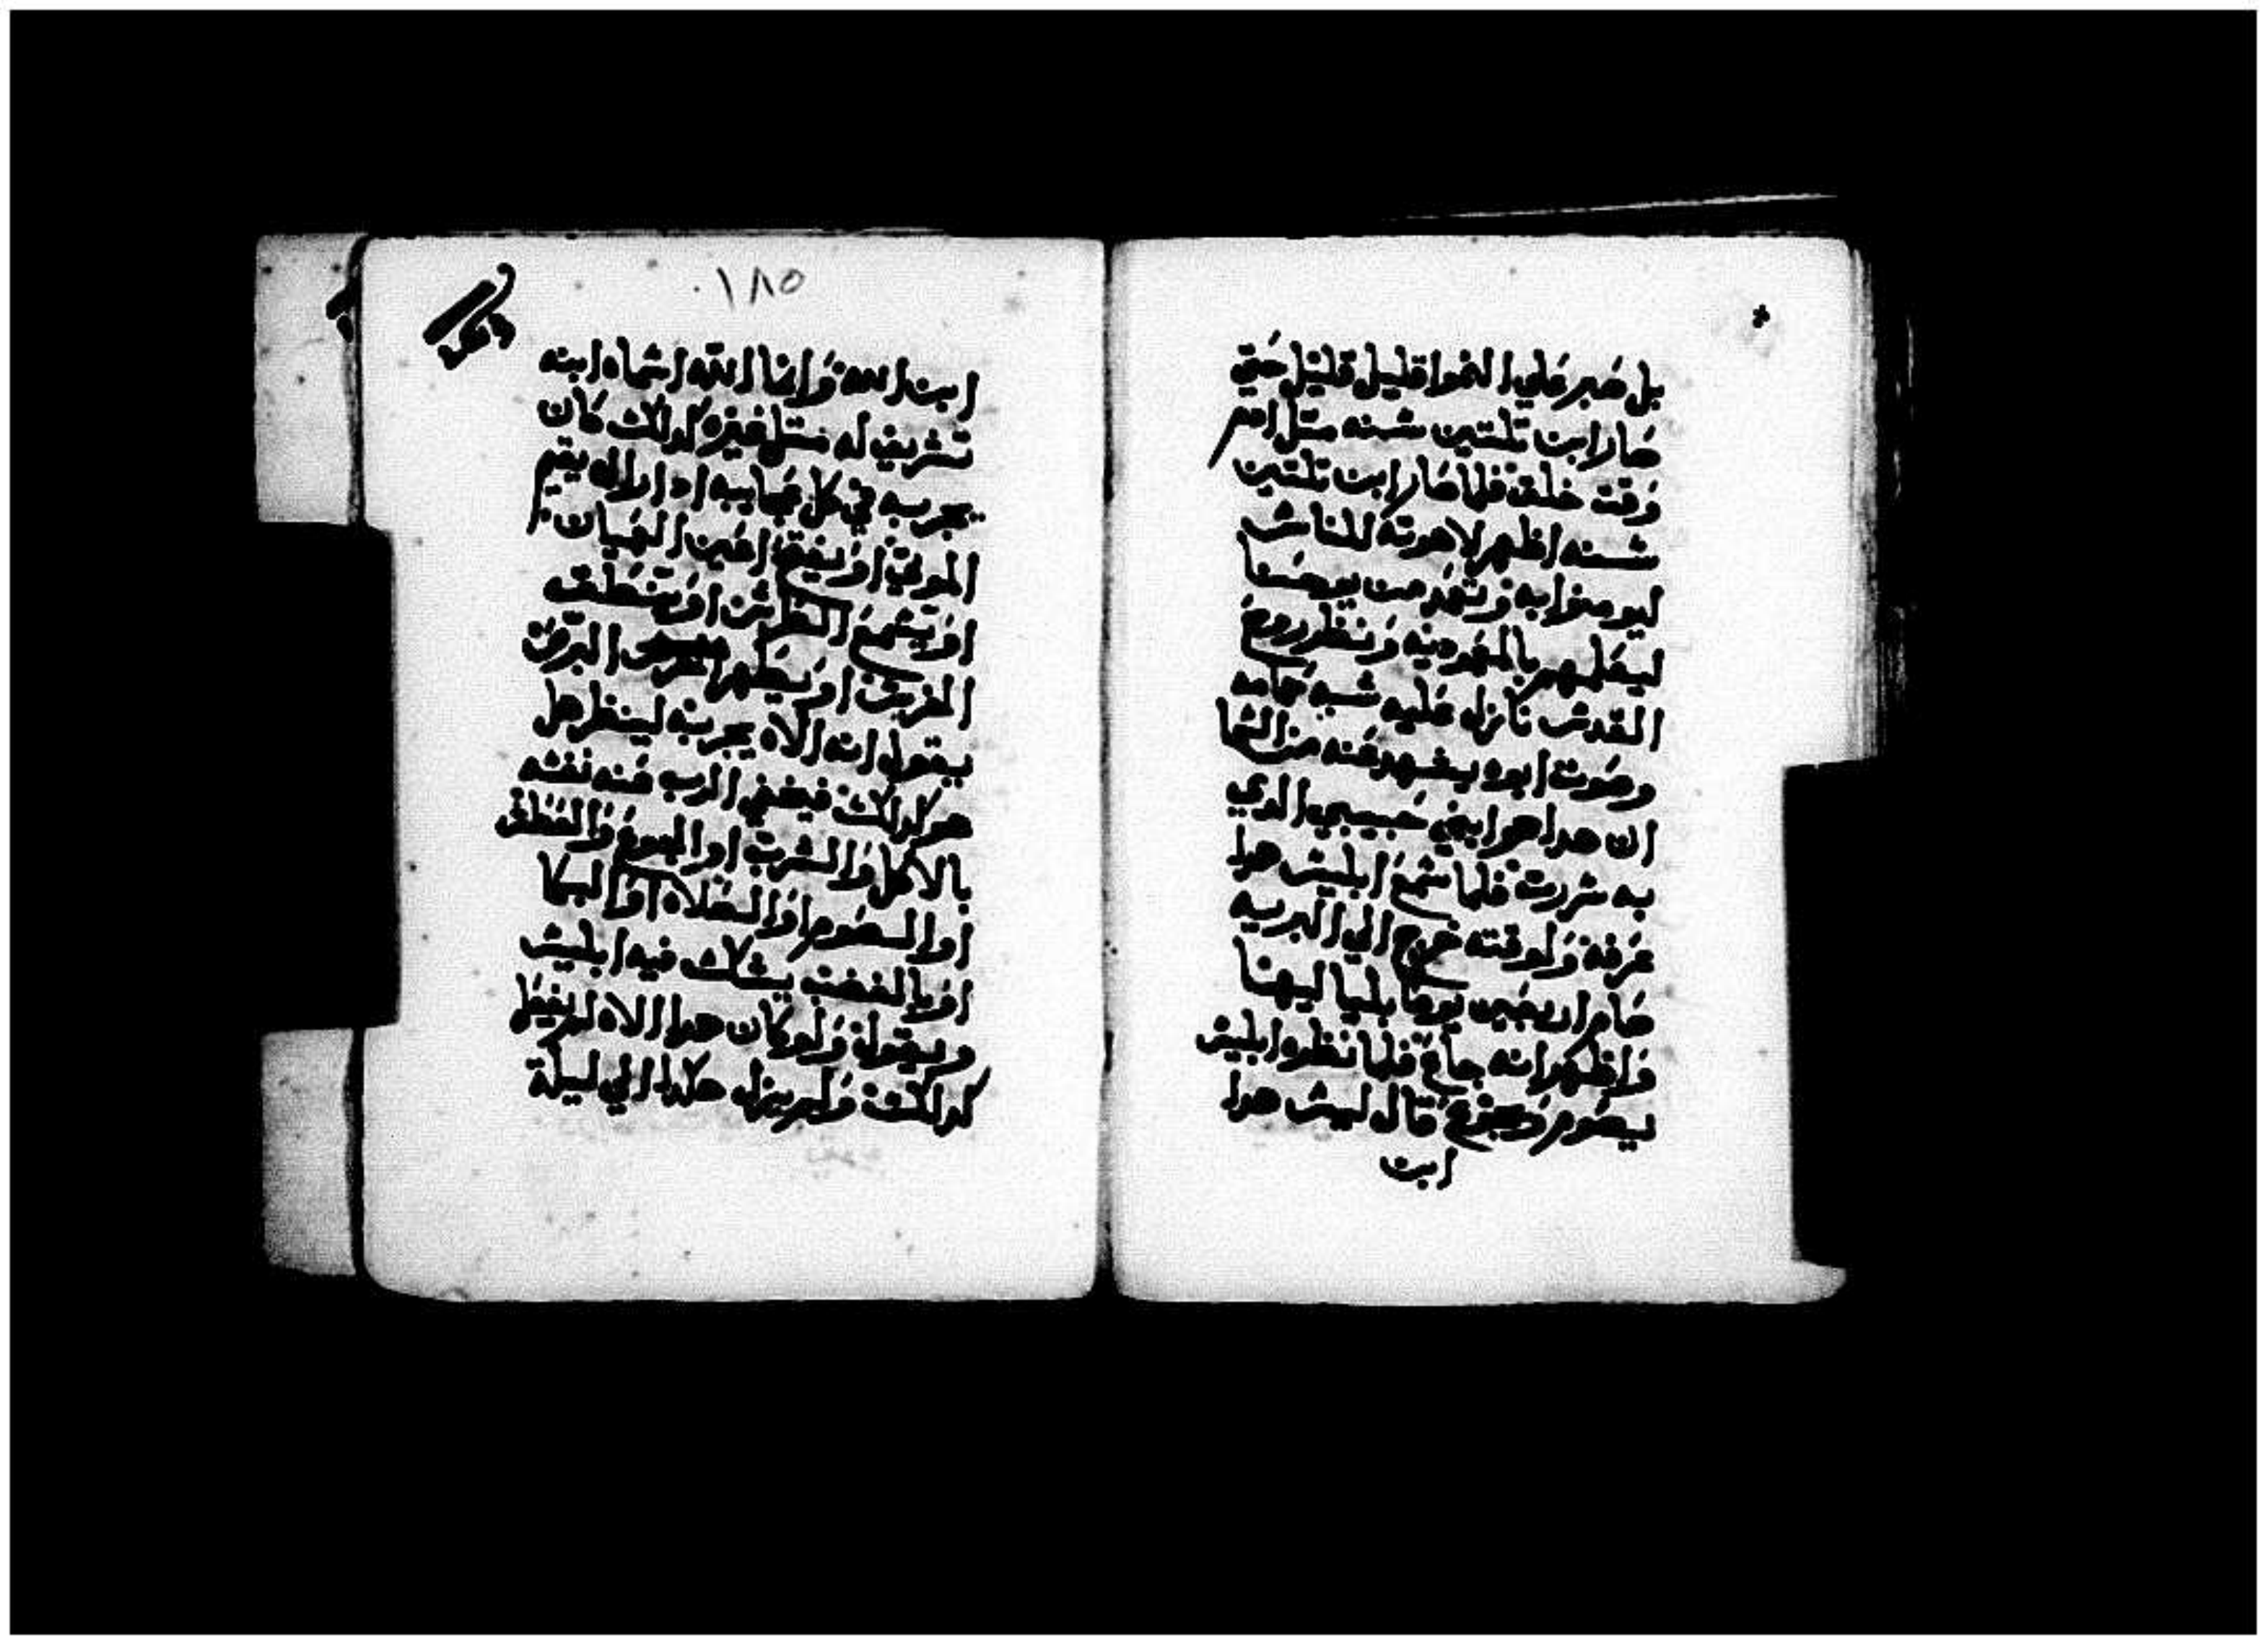 بل صبر علي النموا قليل قليل حتي
صار ابن تلتين سنه متل ادم
وقت خلق فلما صار ابن تلتين
سنه اظهر لاهوته للناس
ليومنوا به وتعمد من يوحنا
ليعلمهم بالمعموديه ونظر روح
القدس نازل عليه شبه حمامه
وصوت ابوه يشهد عنه من السما
ان هدا هو ابني حبيبي الدي
به سررت فلما سمع ابليس هدا
عرفه ولوقته خرج الي البريه
صام اربعين يوما بلياليهنا
واظهر انه جاع فلما نظره ابليس
يصوم ويجزع قال ليس هدا
ابن
١٨٥
ابن الله وانما الله اسماه ابنه
تشريف له متل غيره كدلك كان
يجربه في كل عجايبه ادا راه يقيم
الموتي او يفتح اعين العميان
او يسمع الطرش او ينطق
الخرس او يطهر البرص
يقول انه الاه يجربه لينظر هل
هو كدلك فيخفي الرب عنه نفسه
بالاكل والشرب او الجوع والعطش
او الصوم او الصلاه او البكا
او بالغضب يشك فيه ابليس
ويقول ولو كان هدا الاه لم يفعل
كدلك ولم يزل هكدا الي ليلة